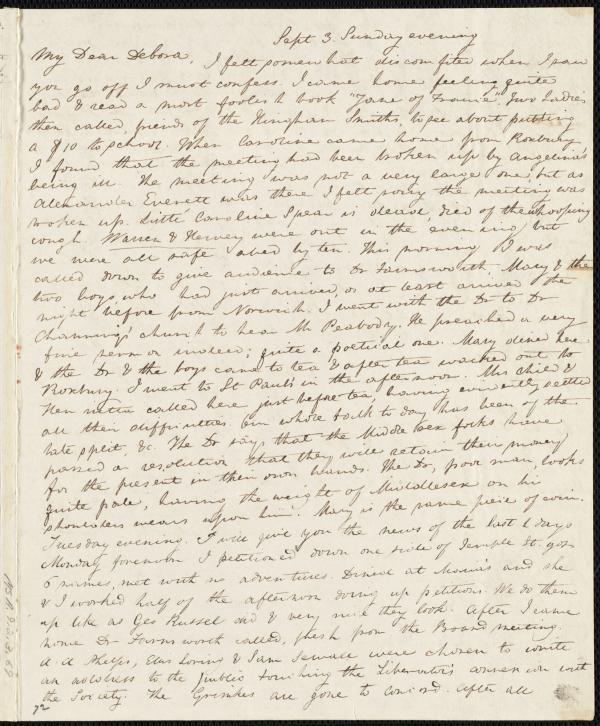 Sept 3. Sunday evening
My Dear Debora,
I felt somewhat discomfited when I saw
you go off I must confess. I came home feeling quite
bad & read a most foolish book "Jane of France". Two Ladies
then called, friends of the Hingham Smiths, to see about putting
a $10 to school. When Caroline came home from Roxbury
I found that the meeting had been broken up by Angelina's
being ill. The meeting was not a very large one, but as
Alexander Everett was there I felt sorry the meeting was
broken up. Little Caroline Spear is dead, died of the whooping
cough. Warren & Hervey were out in the evening, but
we were all safe abed by ten. This morning I was
called down to give audience to Dr Farnsworth, Mary & the
two boys, who had just arrived or at least arrived the
night before from Norwich. I went with the Dr to Dr
Channing's church to hear Mr Peabody. He preached a very
fine sermon indeed; quite a poetical one. Mary dined here
& the Dr & the boys came to tea & after tea walked out to
Roxbury. I went to St Paul's in the afternoon. Mrs Child &
Hen called here just before tea, having evidently settled
all their difficulties. Our whole talk to day has been of the
late split, &c. The Dr says that the Middlesex folks have
passed a resolution that they will retain their money
for the present in their own hands. The Dr, poor man, looks
quite pale, having the weight of Middlesex on his
shoulders wears upon him. Mary is the same piece of coin.
Tuesday evening. I will give you the news of the last 2 days
Monday forenoon I petitioned down one side of Temple St. got
6 names, met with no adventures. Dined at Maria's and she
& I worked half of the afternoon doing up petitions. We do them
up like as Geo Russel did & very nice they look. After I came
home Dr Farnsworth called, fresh from the Board meeting.
A. A Phelps, Ellis Loring & Sam Sewall were chosen to write
an address to the public touching the Liberator's connexion with
the Society. The Grimkes are gone to Concord. After all